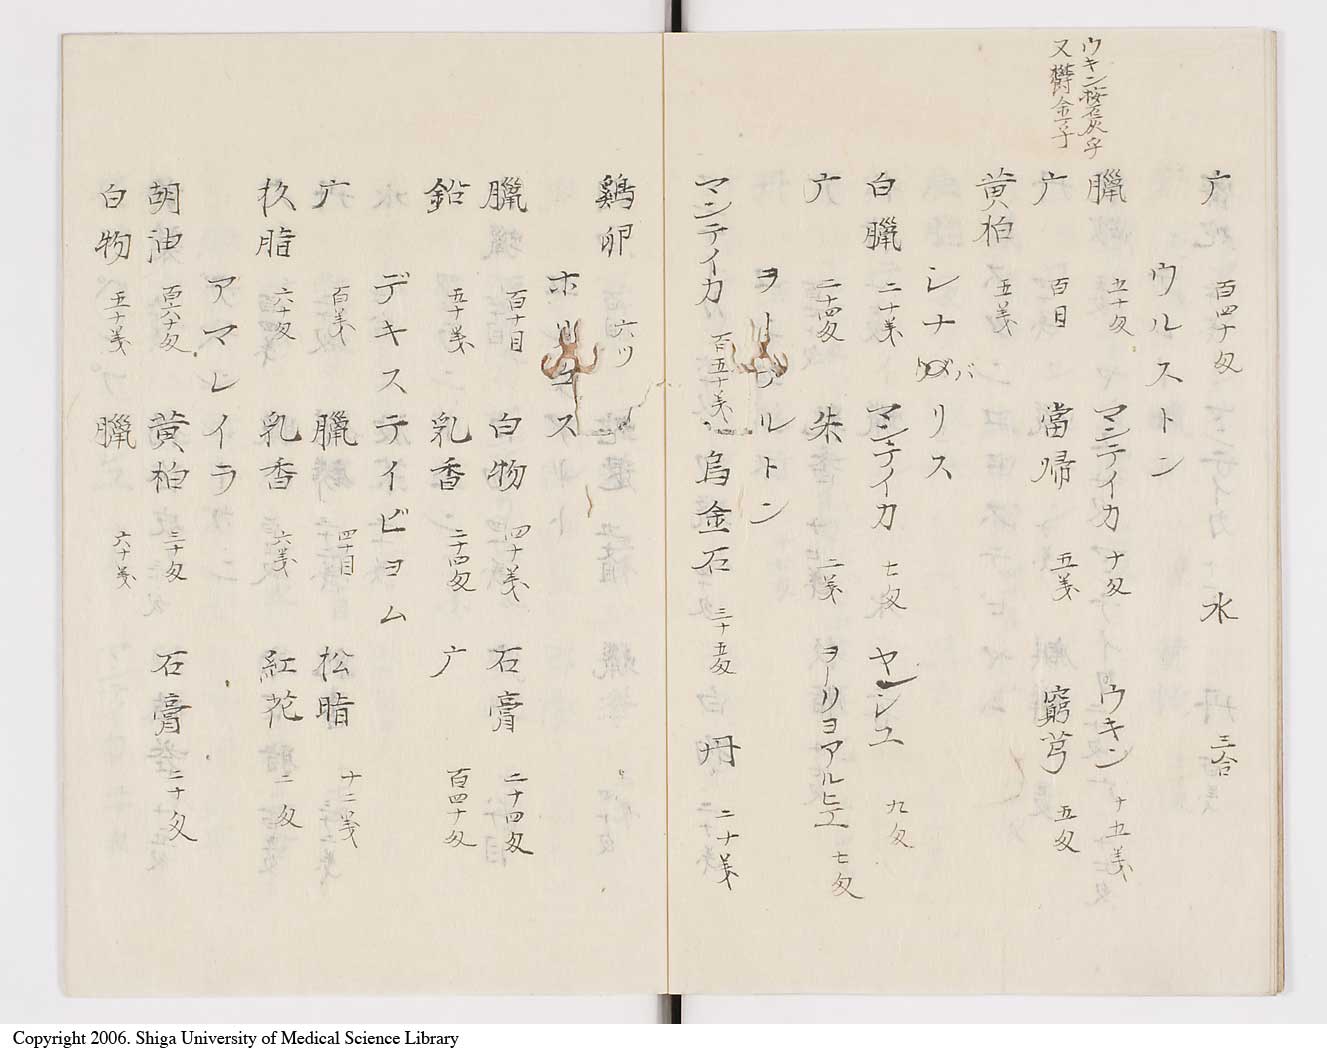 ウキン按石灰乎
又欝金子
广 百四十匁 水 三合
ウルストン
臘 五十匁 マンテイカ 十匁 ウキン 十五羙
广 百目 當帰 五羙 窮芎 五匁
黄柏 五羙
シナバリス
白臘 二十羙 マンテイカ 七匁 ヤシユ 九匁
广 二十四匁 朱 二羙 ヨーリヨアルヒエ 七匁
ヨーフルトン
マンテイカ 百五十羙 烏金石 三十五匁 丹 二十羙
鷄卵 六ツ
臘 百十目 白物 四十羙 石膏 二十四匁
鉛 五十羙 乳香 二十四匁 广 百四十匁
デキステイビヨム
广 百羙 臘 四十目 松脂 十二羙
杦脂 六十匁 乳香 六羙 紅花 二匁
アマレイラ
胡油 百六十匁 黄柏 三十匁 石膏 二十匁
白物 五十羙 臘 六十羙
Copyright 2006. Shiga University of Medical Science Library